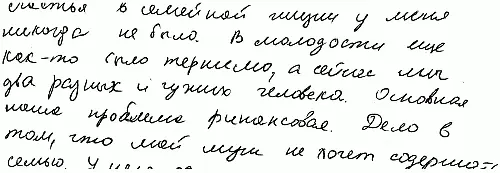 счастья в семейной жизни у меня
никогда не было. В молодости еще
как-то было терпимо, а сейчас мы
два разных и чужих человека. Основная
наша проблема финансовая. Дело в
том, что мой муж не хочет содержать
семью. У него